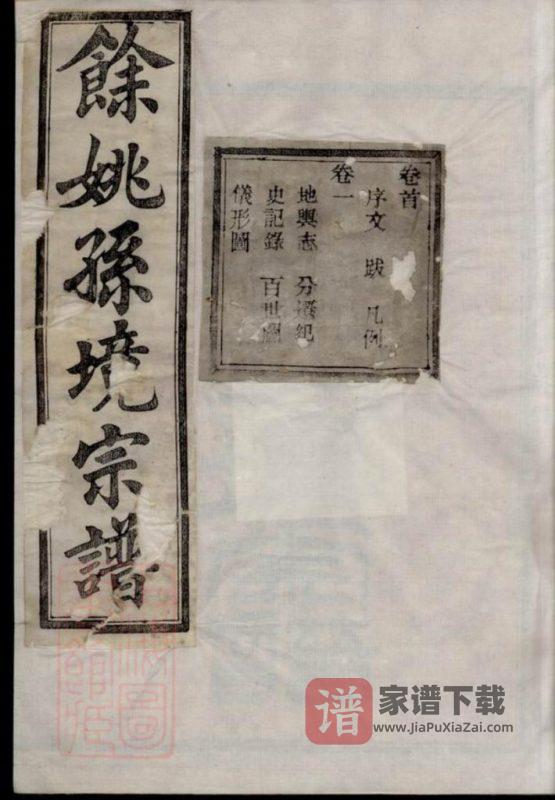 餘姚孫境宗譜
卷首
序文 跋 凡例
卷一
地輿志 分遷紀
史記錄 百世圖
儀形圖
谱 家谱下载
www.JiaPuXiaZai.com